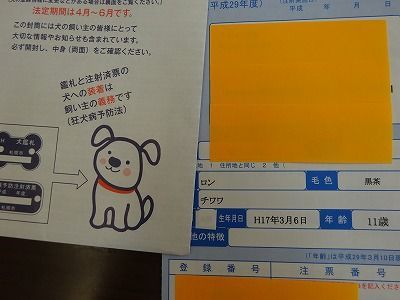 法定期間は4月～6月です。
この封筒には犬の飼い主の皆様にとって
大切な情報やお知らせも含まれています。
必ず開封し、中身(両面)をご確認ください。
鑑札と注射済票の
犬への装着は
飼い主の義務です
(狂犬病予防法)
犬鑑札
札幌市
病予防注射済票
年度
札幌市
平成29年度)
平成 年 月
1 住所地と同じ 2 他(
ロン
毛色
黒茶
チワワ
生年月日
H17年3月6日
年齢
11歳
他の特徴
(「年齢」は平成29年3月10日現
登録番号
注票番号